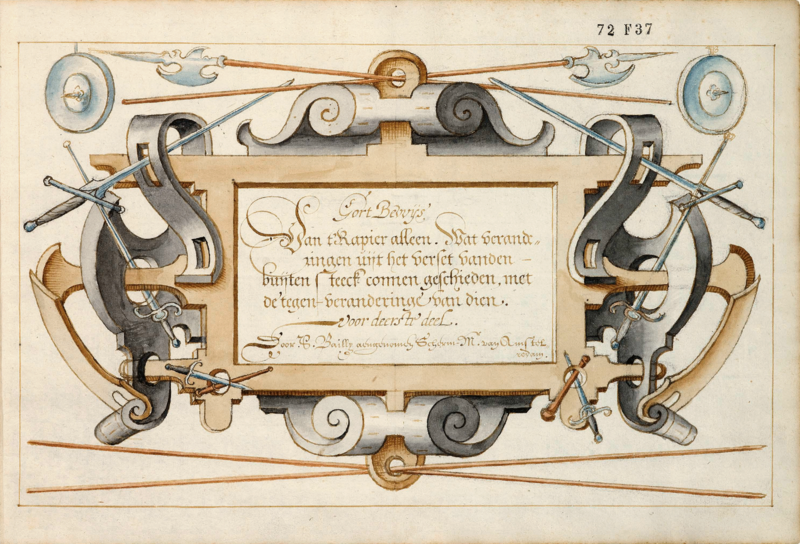 72 F37
Cort Bewijs,
Van t'Rapier alleen. Wat verand„
ringen uijt het verset vanden
buijten steeck connen geschieden, met
de tegen-veranderinge van dien.
voor deerste deel.
Door Bailly Scherm-Mr. van Amstel
redam.